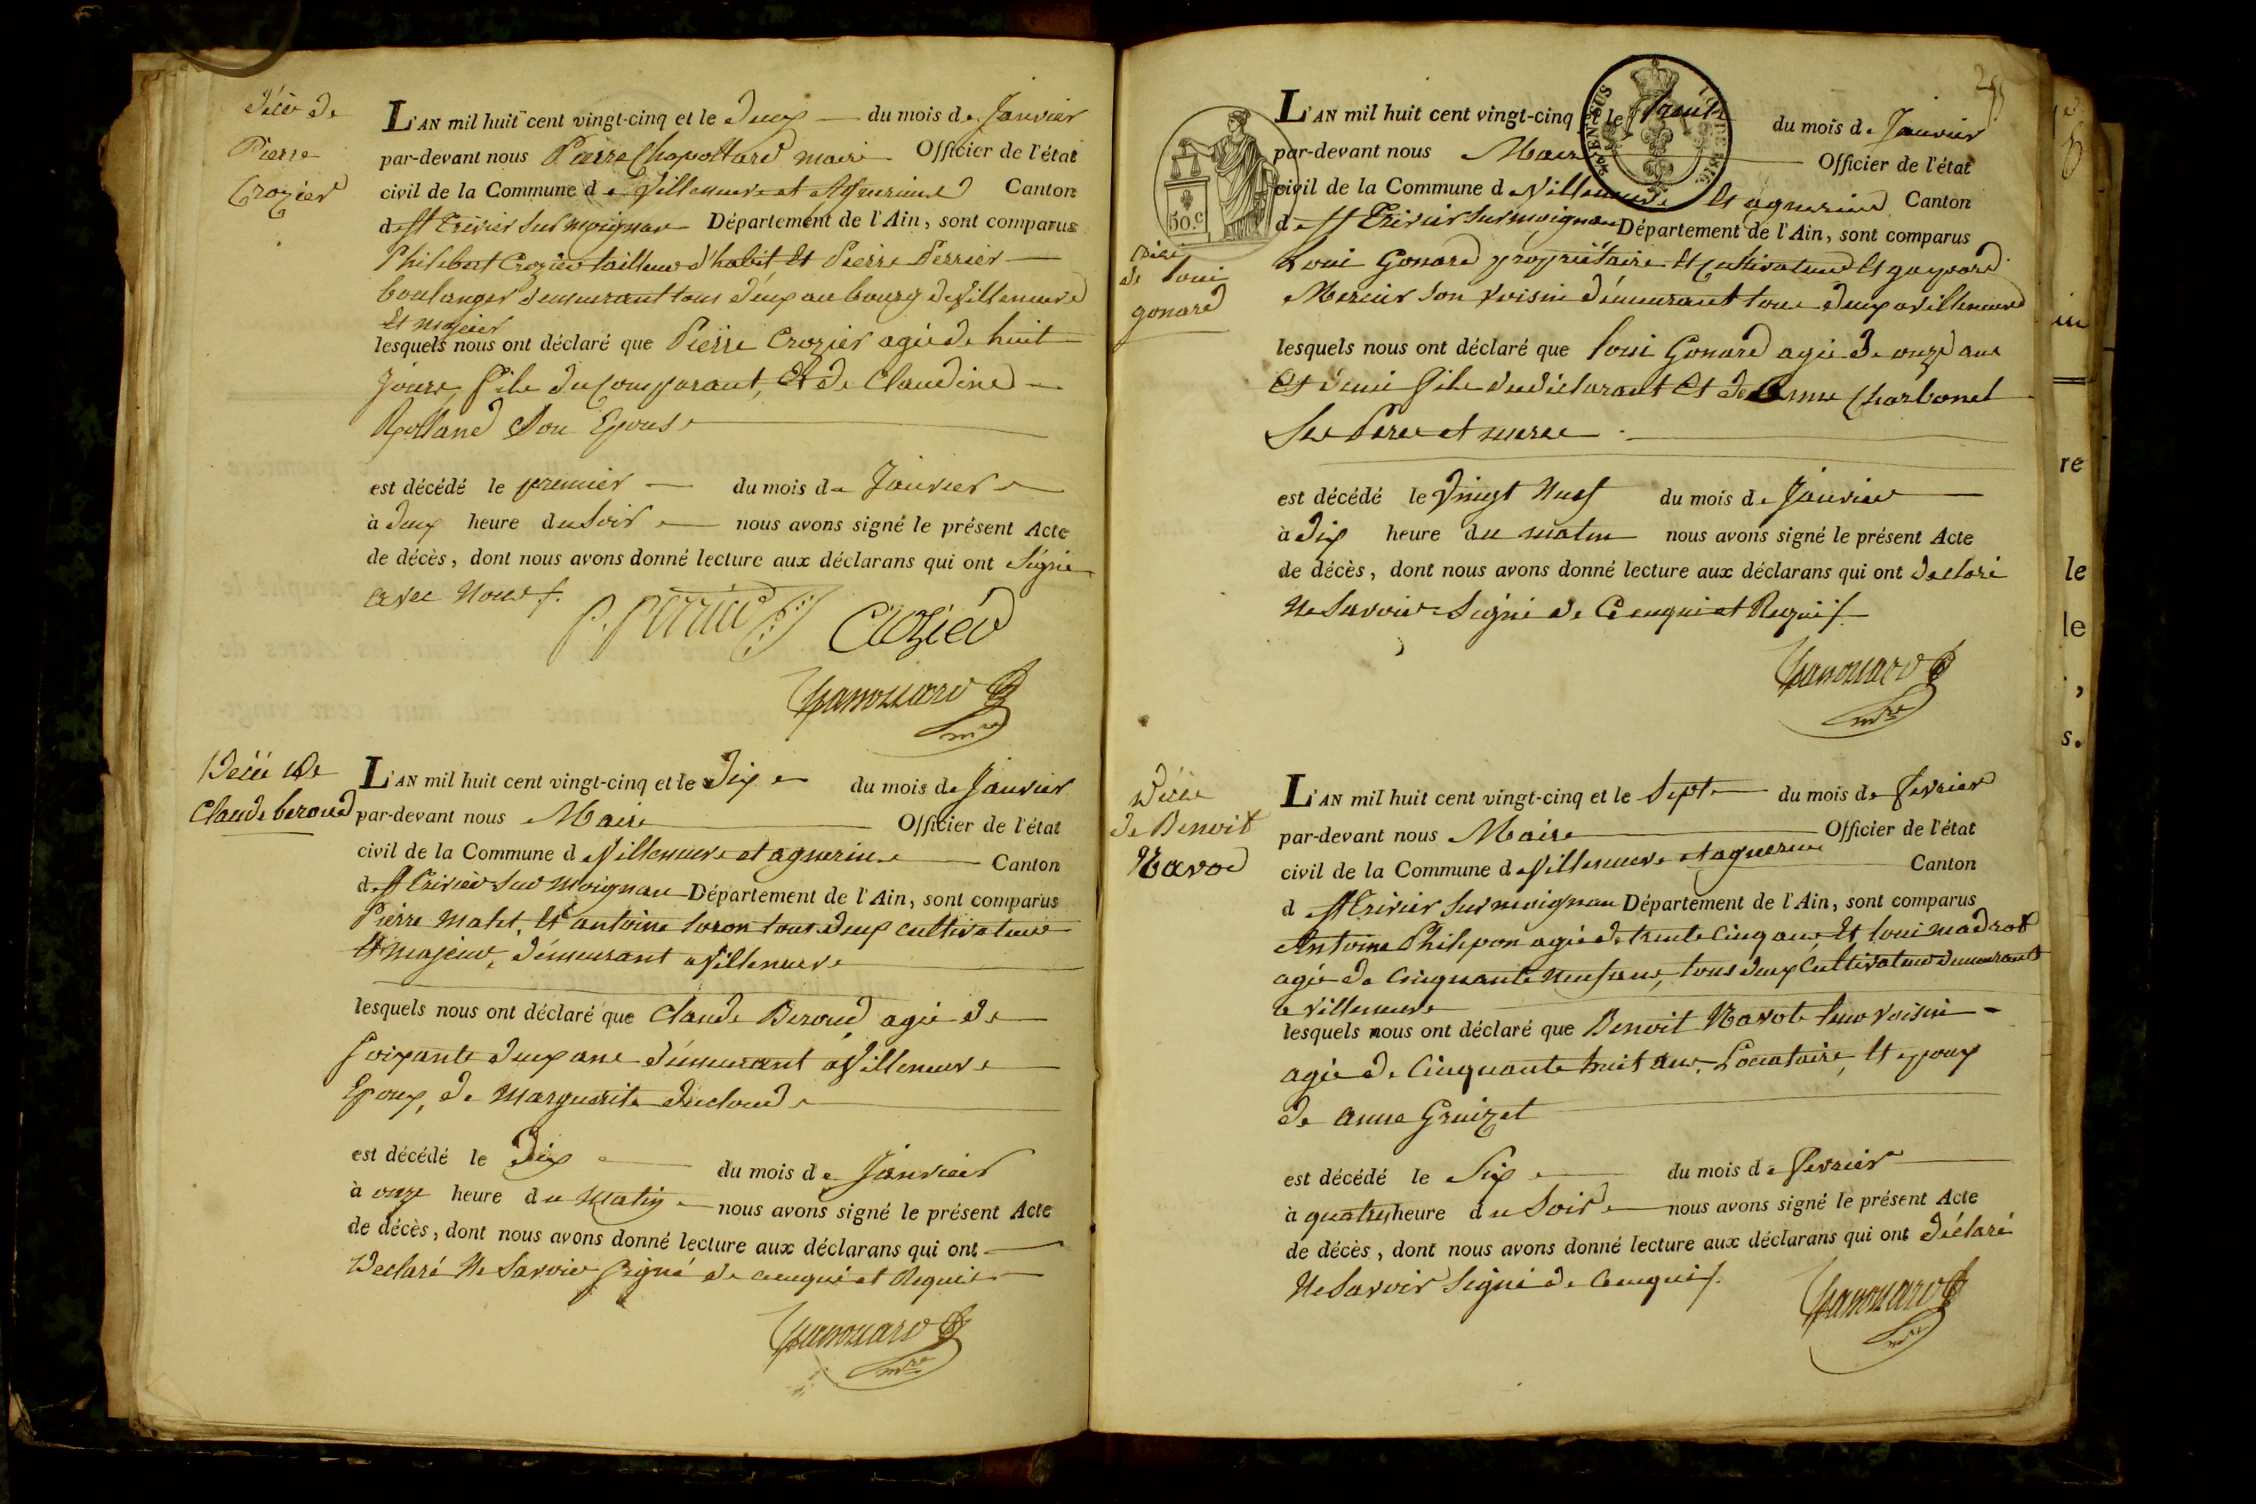 Décè de
Pierre
Crozier
L'AN mil huit cent vingt-cinq et le deux du mois de Janvier
par-devant nous Pierre maire Officier de l'état
civil de la Commune de Villeneuve et Agnereins Canton
de St Trivier sur moignan Département de l'Ain, sont comparus
Philibert Crozier tailleur d'habit, Et Pierre Perrier
boulanger demeurant tous deux au bourg de Villeneuve
Et majeur
lesquels nous ont déclaré que Pierre Crozier agée de huit
Jours, fils du Comparant, Et de Claudine
Rolland Son Epouse
est décédé le premier du mois de Janvier
à deux heure du Soir nous avons signé le présent Acte
de décès, dont nous avons donné lecture aux déclarans qui ont Signé
avec Nous
P. Perrier Crozier
mre
Décé De
Claude beroud
L'AN mil huit cent vingt-cinq et le Dix du mois de Janvier
par-devant nous Maire Officier de l'état
civil de la Commune de Villeneuve et agnereins Canton
de St Trivier sur Moignan Département de l'Ain, sont comparus
Pierre Malet, Et antoine loron tous deux cultivateurs
Et majeur, demeurant a Villeneuve
lesquels nous ont déclaré que Claude Beroud agée de
soixante deux ans demeurant a Villeneuve
Epoux, de Marguerite
est décédé le Dix du mois de Janvier
à onze heure du Matin nous avons signé le présent Acte
de décès, dont nous avons donné lecture aux déclarans qui ont
Declaré Ne Savoir Signé de ce enqui et Requis
mre
L'AN mil huit cent vingt-cinq et le trente du mois de Janvier
par-devant nous Maire Officier de l'état
50.c
civil de la Commune de Villeneuve Et agnereins Canton
de St Trivier sur moignan Département de l'Ain, sont comparus
Décè
de loui
gonard
Loui Gonard propriétaire Et Cultivateur Et gaspard
Mercier son Voisin démeurant tous deux a Villeneuve
lesquels nous ont déclaré que loui Gonard agée de onze ans
Et demi fils du déclarant Et de Anne Charbonet
Ses Peres et meres
est décédé le Vingt Neuf du mois de Janvier
à Dix heure du matin nous avons signé le présent Acte
de décès, dont nous avons donné lecture aux déclarans qui ont declaré
Ne Savoir Signé de Ce enqui et Requis
mre
Décè
de Benoit
Navod
L'AN mil huit cent vingt-cinq et le Sept du mois de fevrier
par-devant nous Maire Officier de l'état
civil de la Commune de Villeneuve et agnereins Canton
de St Trivier sur moignan Département de l'Ain, sont comparus
Antoine Philipon agée de trente Cinq ans Et loui madrot
agée de Cinquante Neuf ans, tous deux Cultivateur demeurant
a Villeneuve
lesquels nous ont déclaré que Benoit Navot leur Voisin
agée de Cinquante huit ans, Locataire, Et Epoux
de anne Gruizet
est décédé le Six du mois de fevrier
à quatre heure du Soir nous avons signé le présent Acte
de décès, dont nous avons donné lecture aux déclarans qui ont déclaré
Ne Savoir Signé de Ce enquis
mre
re
le
le
s.